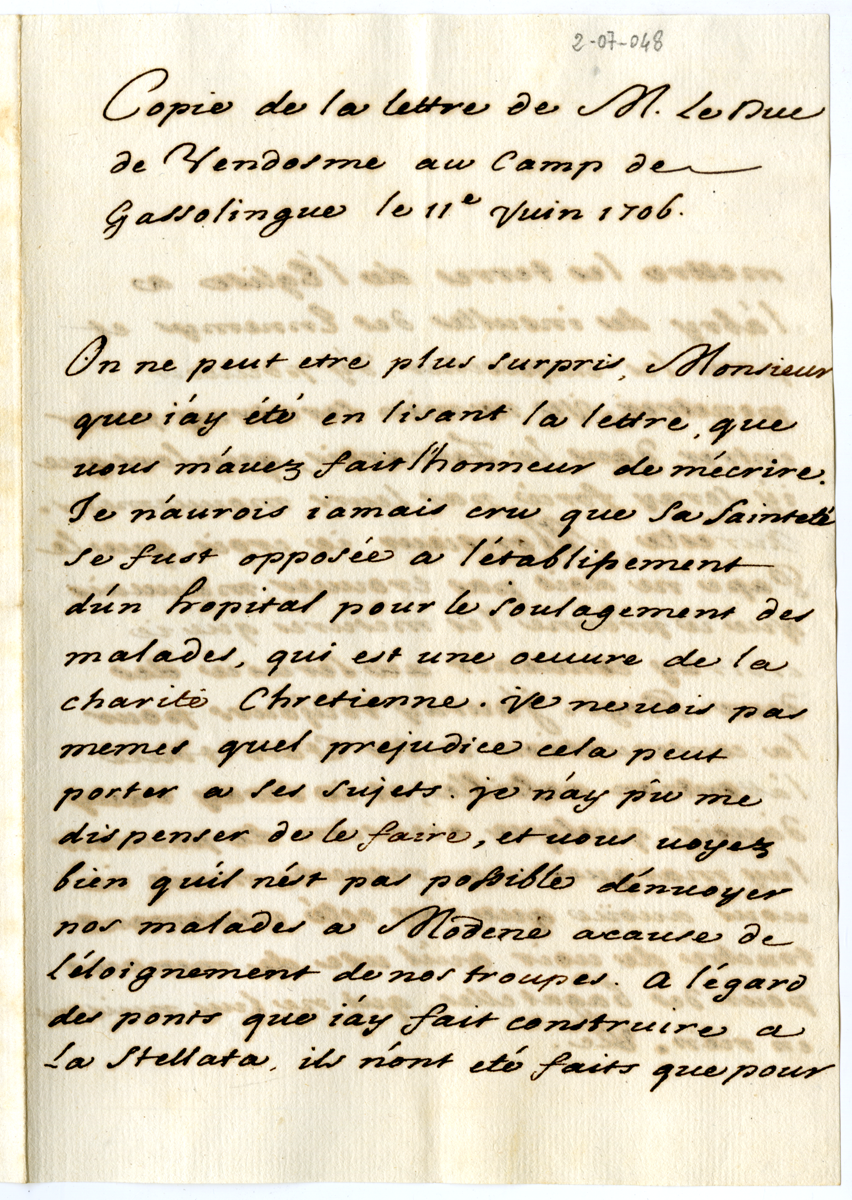 2-07-048
Copie de la lettre de M. Le Duc
de Vendosme au Camp de
Gassolingue le 11e Juin 1706.
On ne peut etre plus surpris, Monsieur
que i'áy été en lisant la lettre, que
vous m'avez fait l'honneur de m'écrire.
Je n'aurois iamais cru que Sa Sainteté
se fust opposée a l'établissement
d'ún hopital pour le soulagement des
malades, qui est une oeuure de la
charité Chretienne. Je ne vois pas
memes quel prejudice cela peut
porter a ses sujets. je n'áy pû me
dispenser de le faire, et vous voyez
bien qu'il n'ést pas possible d'énvoyer
nos malades a Modene acause de
l'éloignement de nos troupes. A l'égard
des ponts que i'áy fait construire a
La Stellata, ils n'ont eté faits que pour